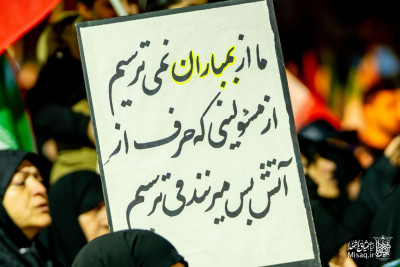 ما از بمباران نمی ترسیم
از مسئولینی که حرف از
آتش بس میزنند می ترسیم
Misaq.ir